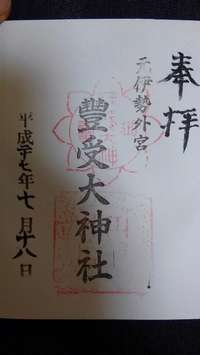 奉拝
元伊勢外宮
豐受大神社
平成二十七年七月十八日